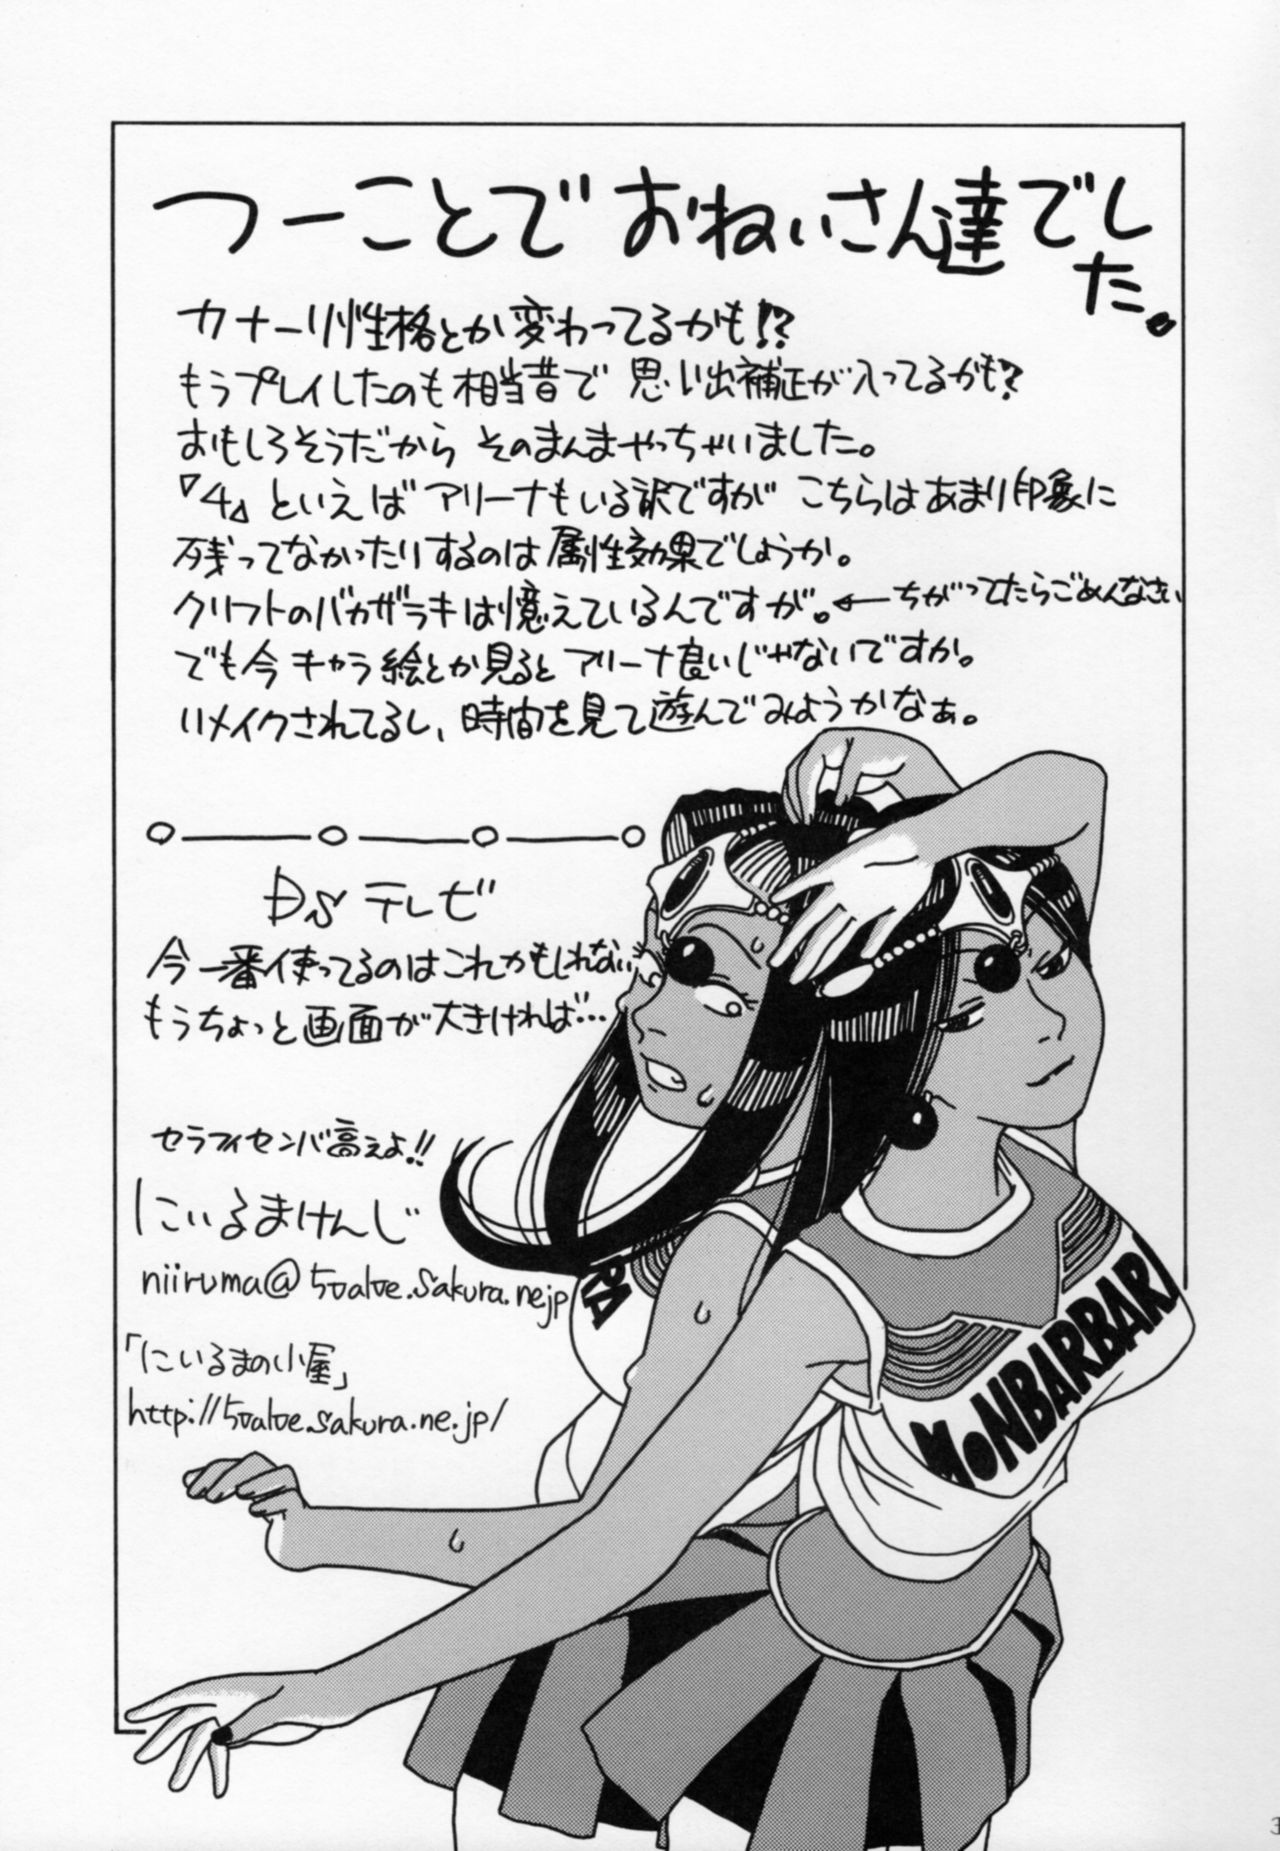 つーことでおねぃさん達でした。
カナーリ性格とか変わってるかも!?
もうプレイしたのも相当昔で 思い出補正が入ってるかも?
おもしろそうだから そのまんまやっちゃいました。
『4』といえばアリーナもいる訳ですが こちらはあまり印象に
残ってなかったりするのは属性効果でしょうか。
クリフトのバカザラキは憶えているんですが。←ちがってたらごめんなさい
でも今キャラ絵とか見るとアリーナ良いじゃないですか。
リメイクされてるし、時間を見て遊んでみようかなぁ。
DSテレビ
今一番使ってるのはこれかもしれない
もうちょっと画面が大きければ…
セラフィセンバ高ぇよ!!
にぃるまけんじ
niiruma@5value.sakura.ne.jp
「にぃるまの小屋」
http://5value.sakura.ne.jp/
RA
MONBARBARA
3